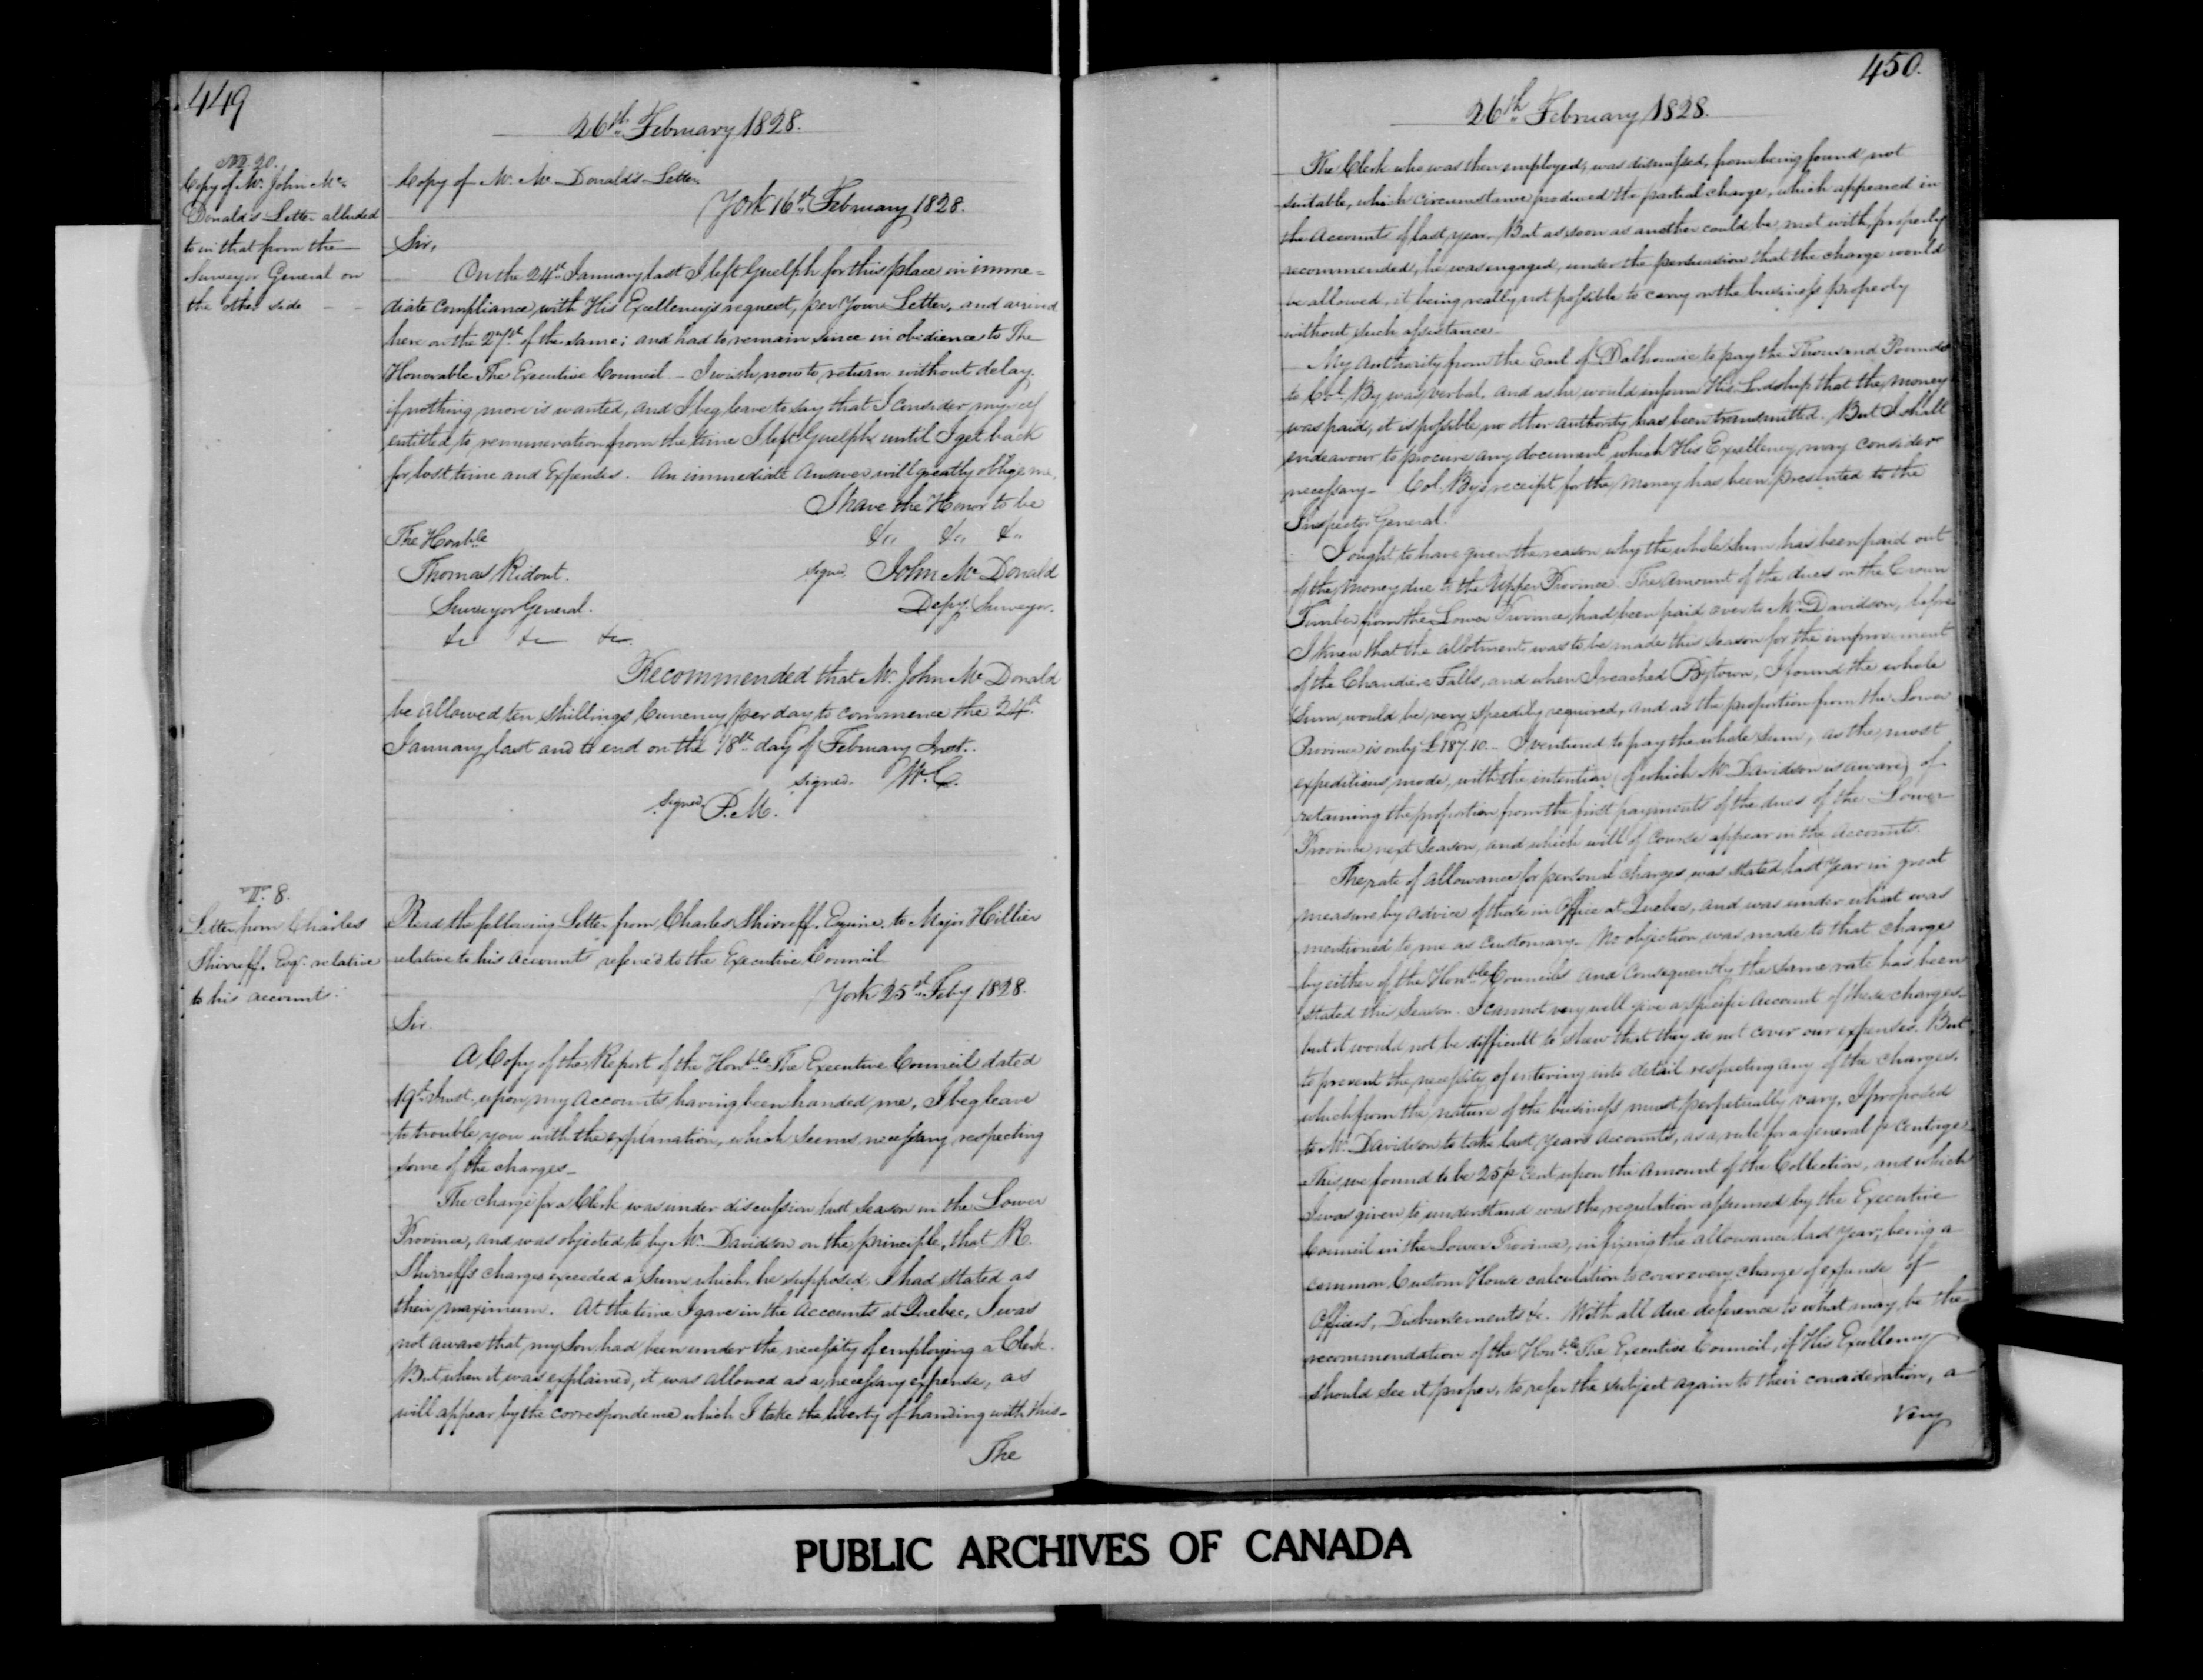 449
26th February 1828.
M. 20.
Copy of Mr. John Mc
Donald's Letter alluded
to in that from the
Surveyor General on
the other side
Copy of Mr. Mc Donald's Letter
York 16th February 1828.
Sir,
On the 24th January last I left Guelph for this place in imme=
diate compliance, with His Excellency's request, per Your Letter, and arrived
here on the 27th of the same; and had to remain since in obedience to The
Honorable The Executive Council - I wish now to return without delay.
if nothing more is wanted, and I beg leave to say that I consider myself
entitled to remuneration from the time I left Guelph until I get back
for lost time and Expenses. An immediate answer will greatly oblige me,
I have the Honor to be
&c &c &c
The Honble
Thomas Ridout.
Surveyor General.
&c &c &c.
signed John Mc Donald
Depy. Surveyor.
Recommended that Mr. John Mc Donald
be allowed ten shillings Currency per day to commence the 24th
January last and to end on the 18th day of February Inst.
signed. W. C.
signed P. M.
8.
Letter from Charles
Shirreff. Esqr. relative
to his accounts.
Read the following Letter from Charles Shirreff. Esquire, to Major Hillier
relative to his Accounts referred to the Executive Council
York 25th Feby 1828.
Sir.
A Copy of the Report of the Honble The Executive Council dated
19th Inst. upon my Accounts having been handed me, I beg leave
to trouble you with the explanation, which seems necessary respecting
some of the charges -
The charge for a Clerk was under discussion last season in the Lower
Province, and was objected to by Mr. Davidson on the principle, that R.
Shirreff's charges exceeded a sum which he supposed I had stated as
their maximum. At the time I gave in the Accounts at Quebec, I was
not aware that my Son had been under the necessity of employing a Clerk.
But when it was explained, it was allowed as a necessary expense, as
will appear by the correspondence which I take the liberty of handing with this -
The
450.
26th February 1828.
The Clerk who was then employed, was dismissed, from being found not
suitable, which circumstance produced the partial charge, which appeared in
the Accounts of last year. But as soon as another could be met with, properly
recommended, he was engaged, under the persuasion that the charge would
be allowed, it being really not possible to carry on the business properly
without such assistance -
My authority from the Earl of Dalhousie to pay the Thousand Pounds
to Col. By was verbal, and as he would inform His Lordship that the money
was paid, it is possible no other authority has been transmitted. But I shall
endeavour to procure any document which His Excellency may consider
necessary - Col. By's receipt for the money has been presented to the
Inspector General.
I ought to have given the reason why the whole sum has been paid out
of the money due to the Upper Province. The amount of the dues on the Crown
Timber from the Lower Province had been paid over to Mr. Davidson, before
I knew that the allotment was to be made this season for the improvement
of the Chaudiere Falls, and when I reached Bytown, I found the whole
sum would be very speedily required, and as the proportion from the Lower
Province is only £187.10 - I ventured to pay the whole sum, as the most
expeditious mode, with the intention (of which Mr Davidson is aware) of
retaining the proportion from the first payments of the dues of the Lower
Province next season, and which will of course appear in the Accounts.
The rate of allowance for personal charges was stated last year in great
measure by advice of those in Office at Quebec, and was under what was
mentioned to me as customary. No objection was made to that charge
by either of the Honble Councils and consequently the same rate has been
stated this season. I cannot very well give a specific account of these charges -
but it would not be difficult to shew that they do not cover our expenses. But
to prevent the necessity of entering into detail respecting any of the charges,
which from the nature of the business must perpetually vary, I proposed
to Mr. Davidson to take last years accounts, as a rule for a general pr centage
This we found to be 25 pr Cent upon the amount of the Collection, and which
I was given to understand was the regulation assumed by the Executive
Council in the Lower Province, in fixing the allowance last year, being a
common Custom House calculation to cover every charge of expense of
Offices, Disbursements &c. With all due deference to what may be the
recommendation of the Honble The Executive Council, if His Excellency
should see it proper, to refer the subject again to their consideration, a
very
PUBLIC ARCHIVES OF CANADA